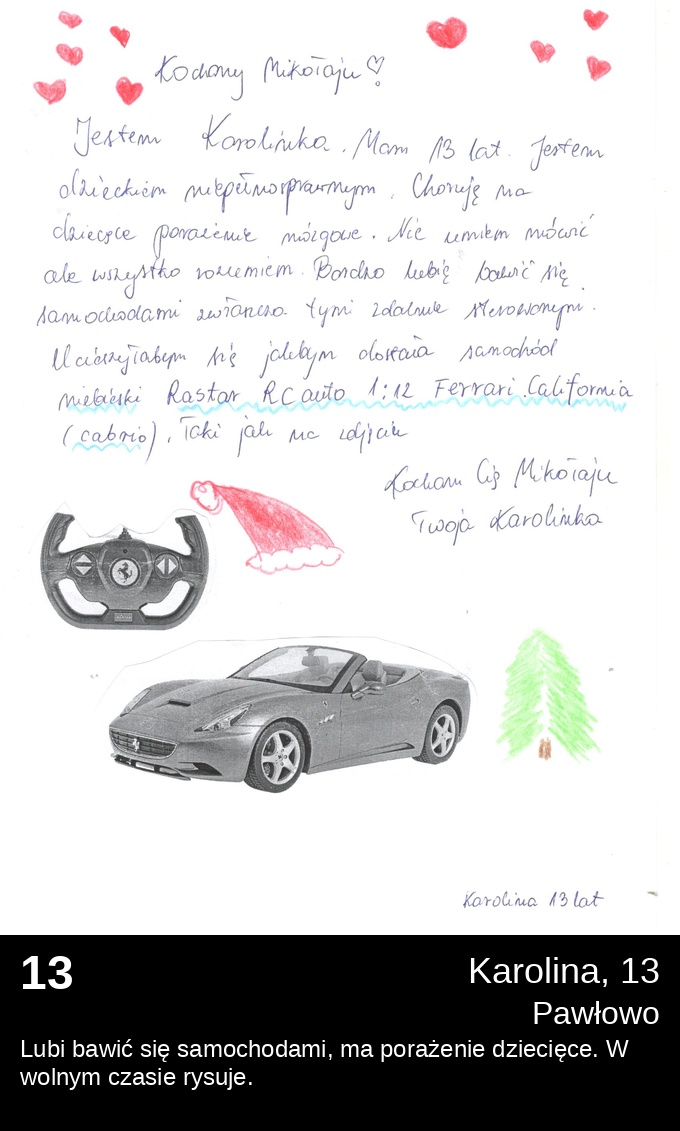 Kochany Mikołaju ♡!
Jestem Karolinka. Mam 13 lat. Jestem
dzieckiem niepełnosprawnym. Choruję na
dziecięce porażenie mózgowe. Nie umiem mówić
ale wszystko rozumiem. Bardzo lubię bawić się
samochodami zwłaszcza tymi zdalnie sterowanym.
Ucieszyłabym się jakbym dostała samochód
niebieski Rastar RC auto 1:12 Ferrari California
(cabrio). Taki jak na zdjęciu
Kocham Cię Mikołaju
Twoja Karolinka
Karolina 13 lat
13
Karolina, 13
Pawłowo
Lubi bawić się samochodami, ma porażenie dziecięce. W
wolnym czasie rysuje.